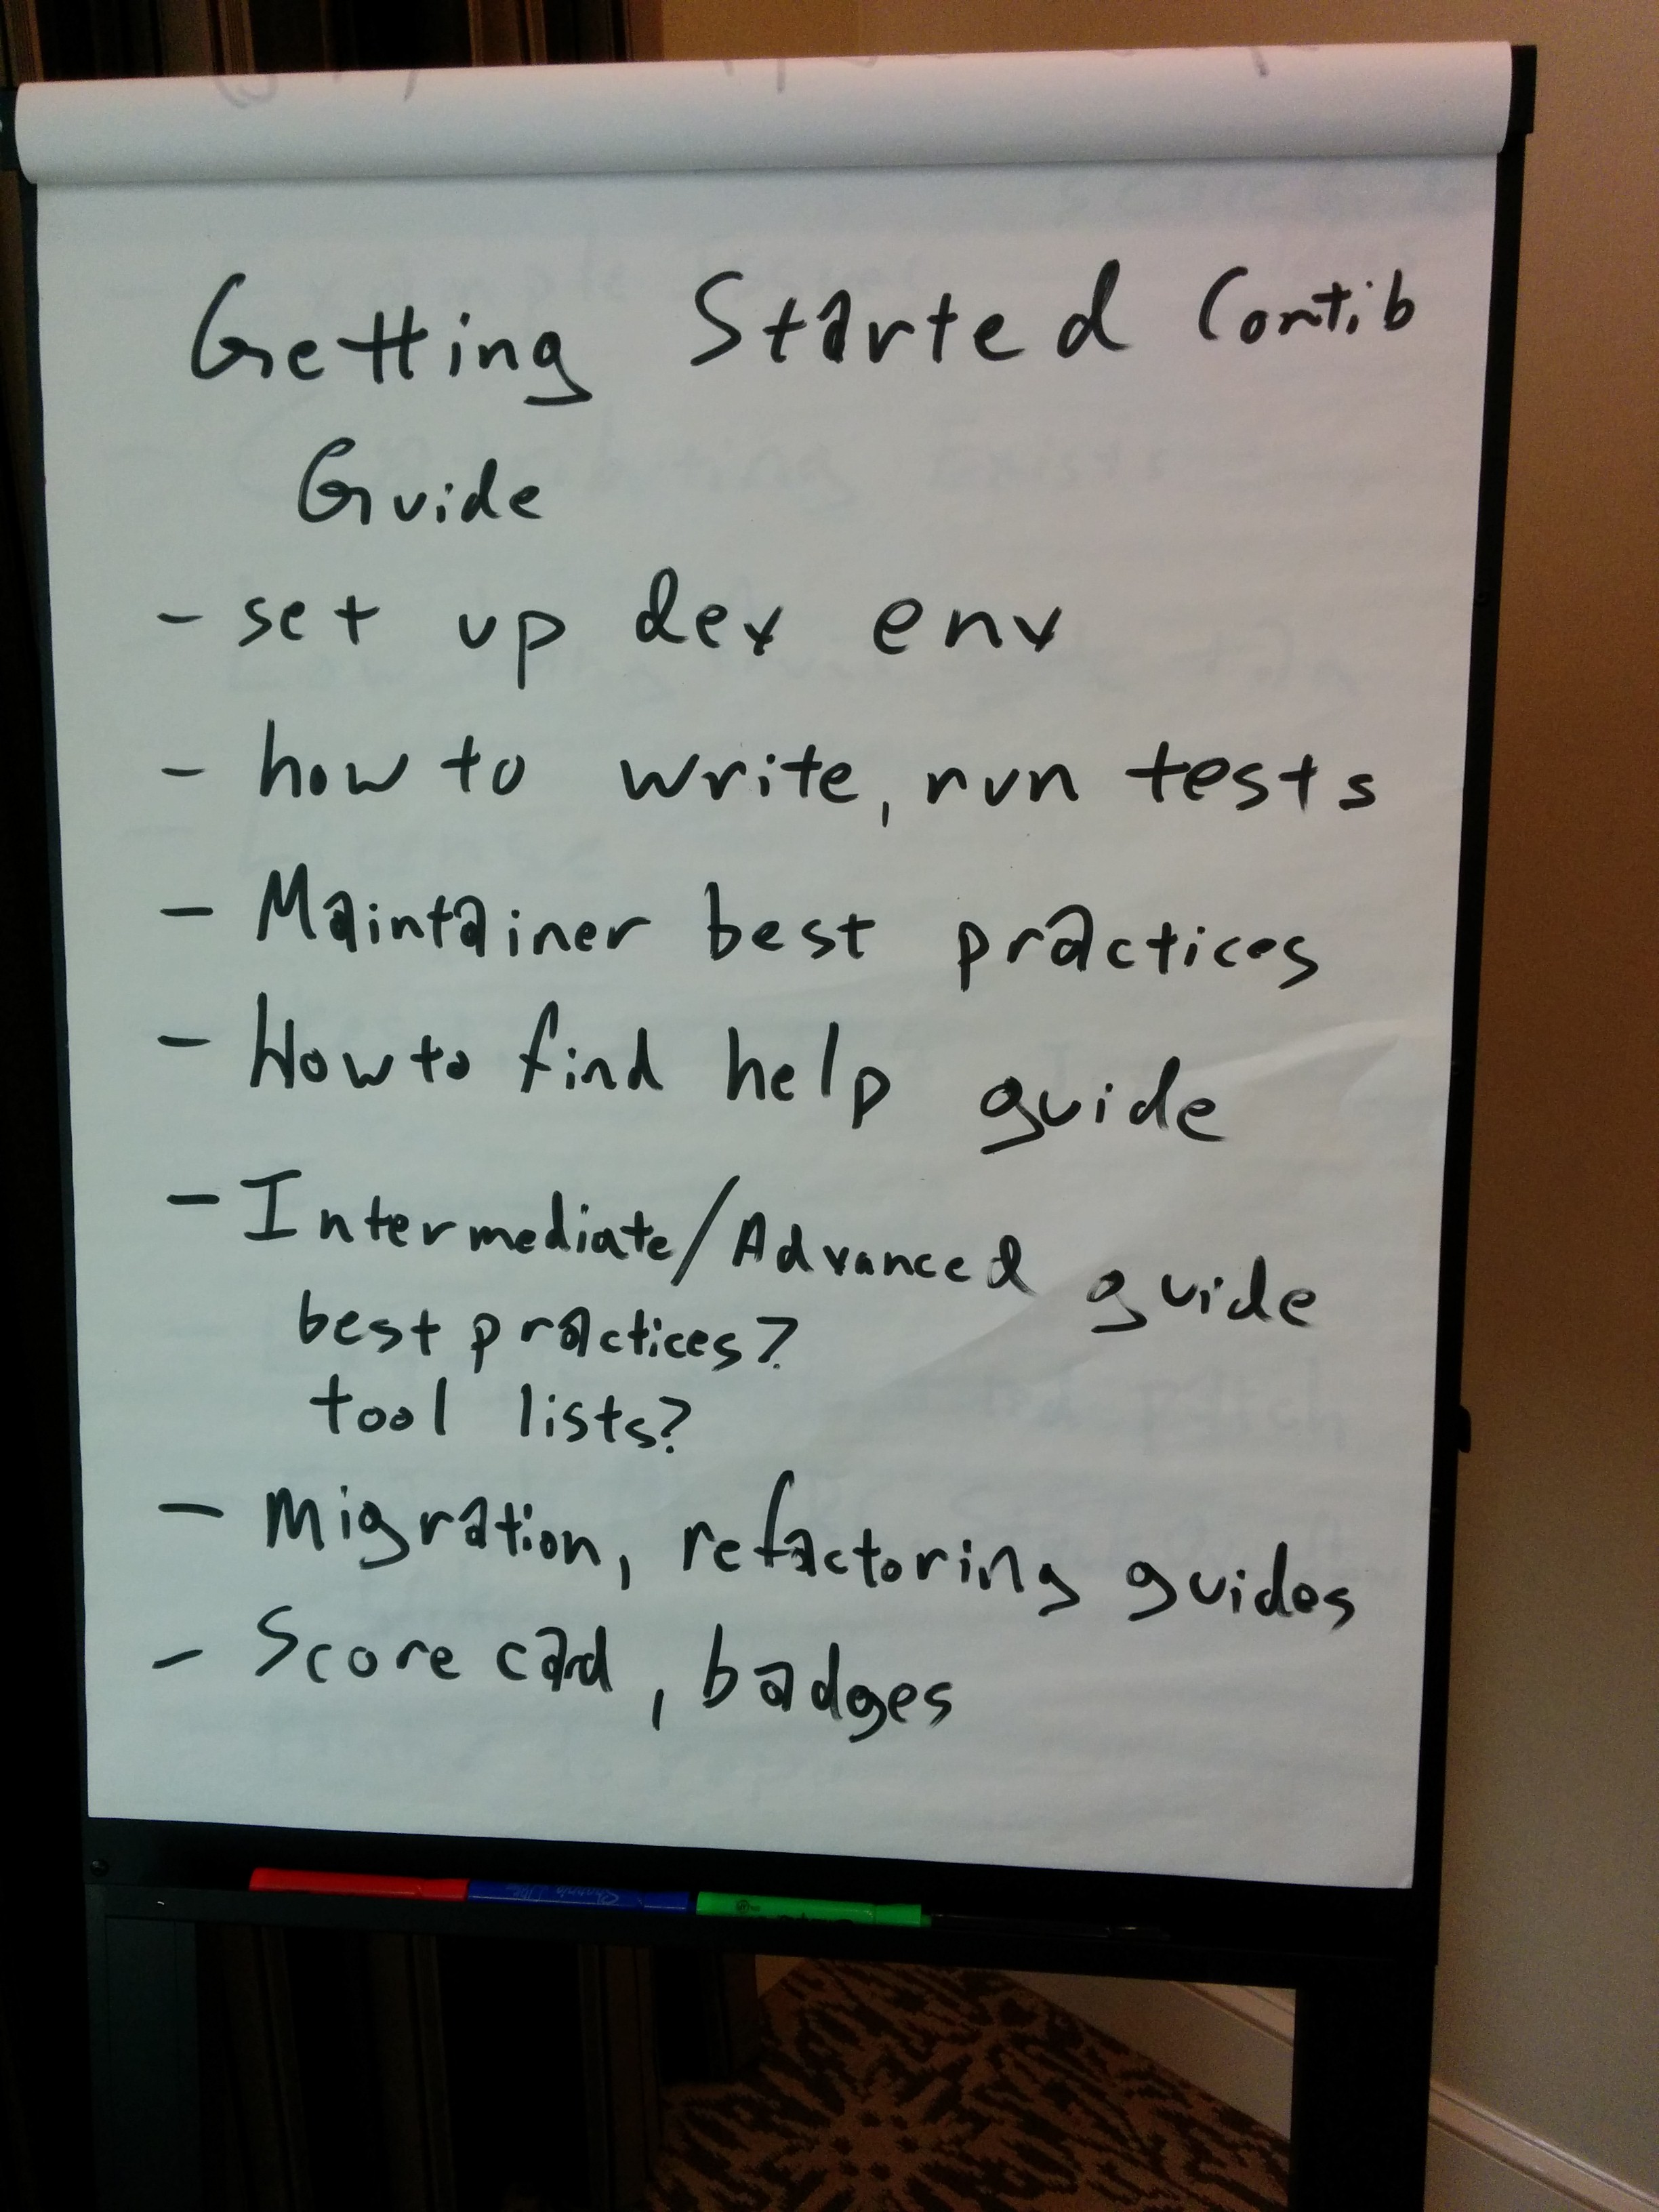 Getting Started Contib
Guide
- set up dev env
- how to write, run tests
- Maintainer best practices
- How to find help guide
- Intermediate/Advanced guide
best practices?
tool lists?
- Migration, refactoring guides
- Score card, badges